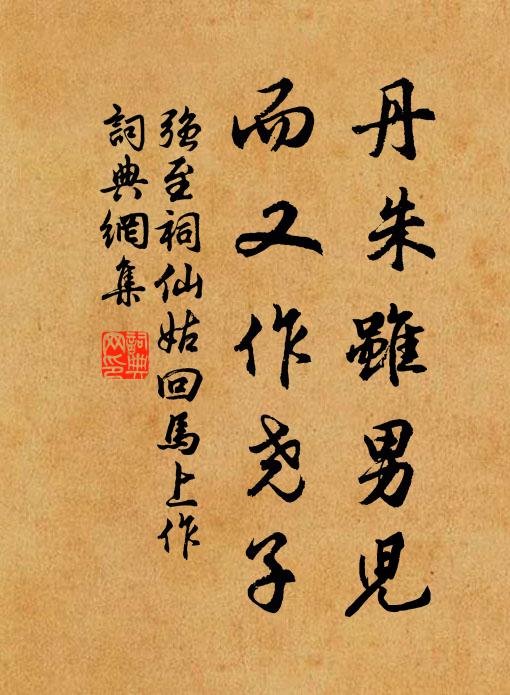 丹朱雖男児
而又作尧子
強至祠仙姑回馬上作
詞典網集
詞典
网印